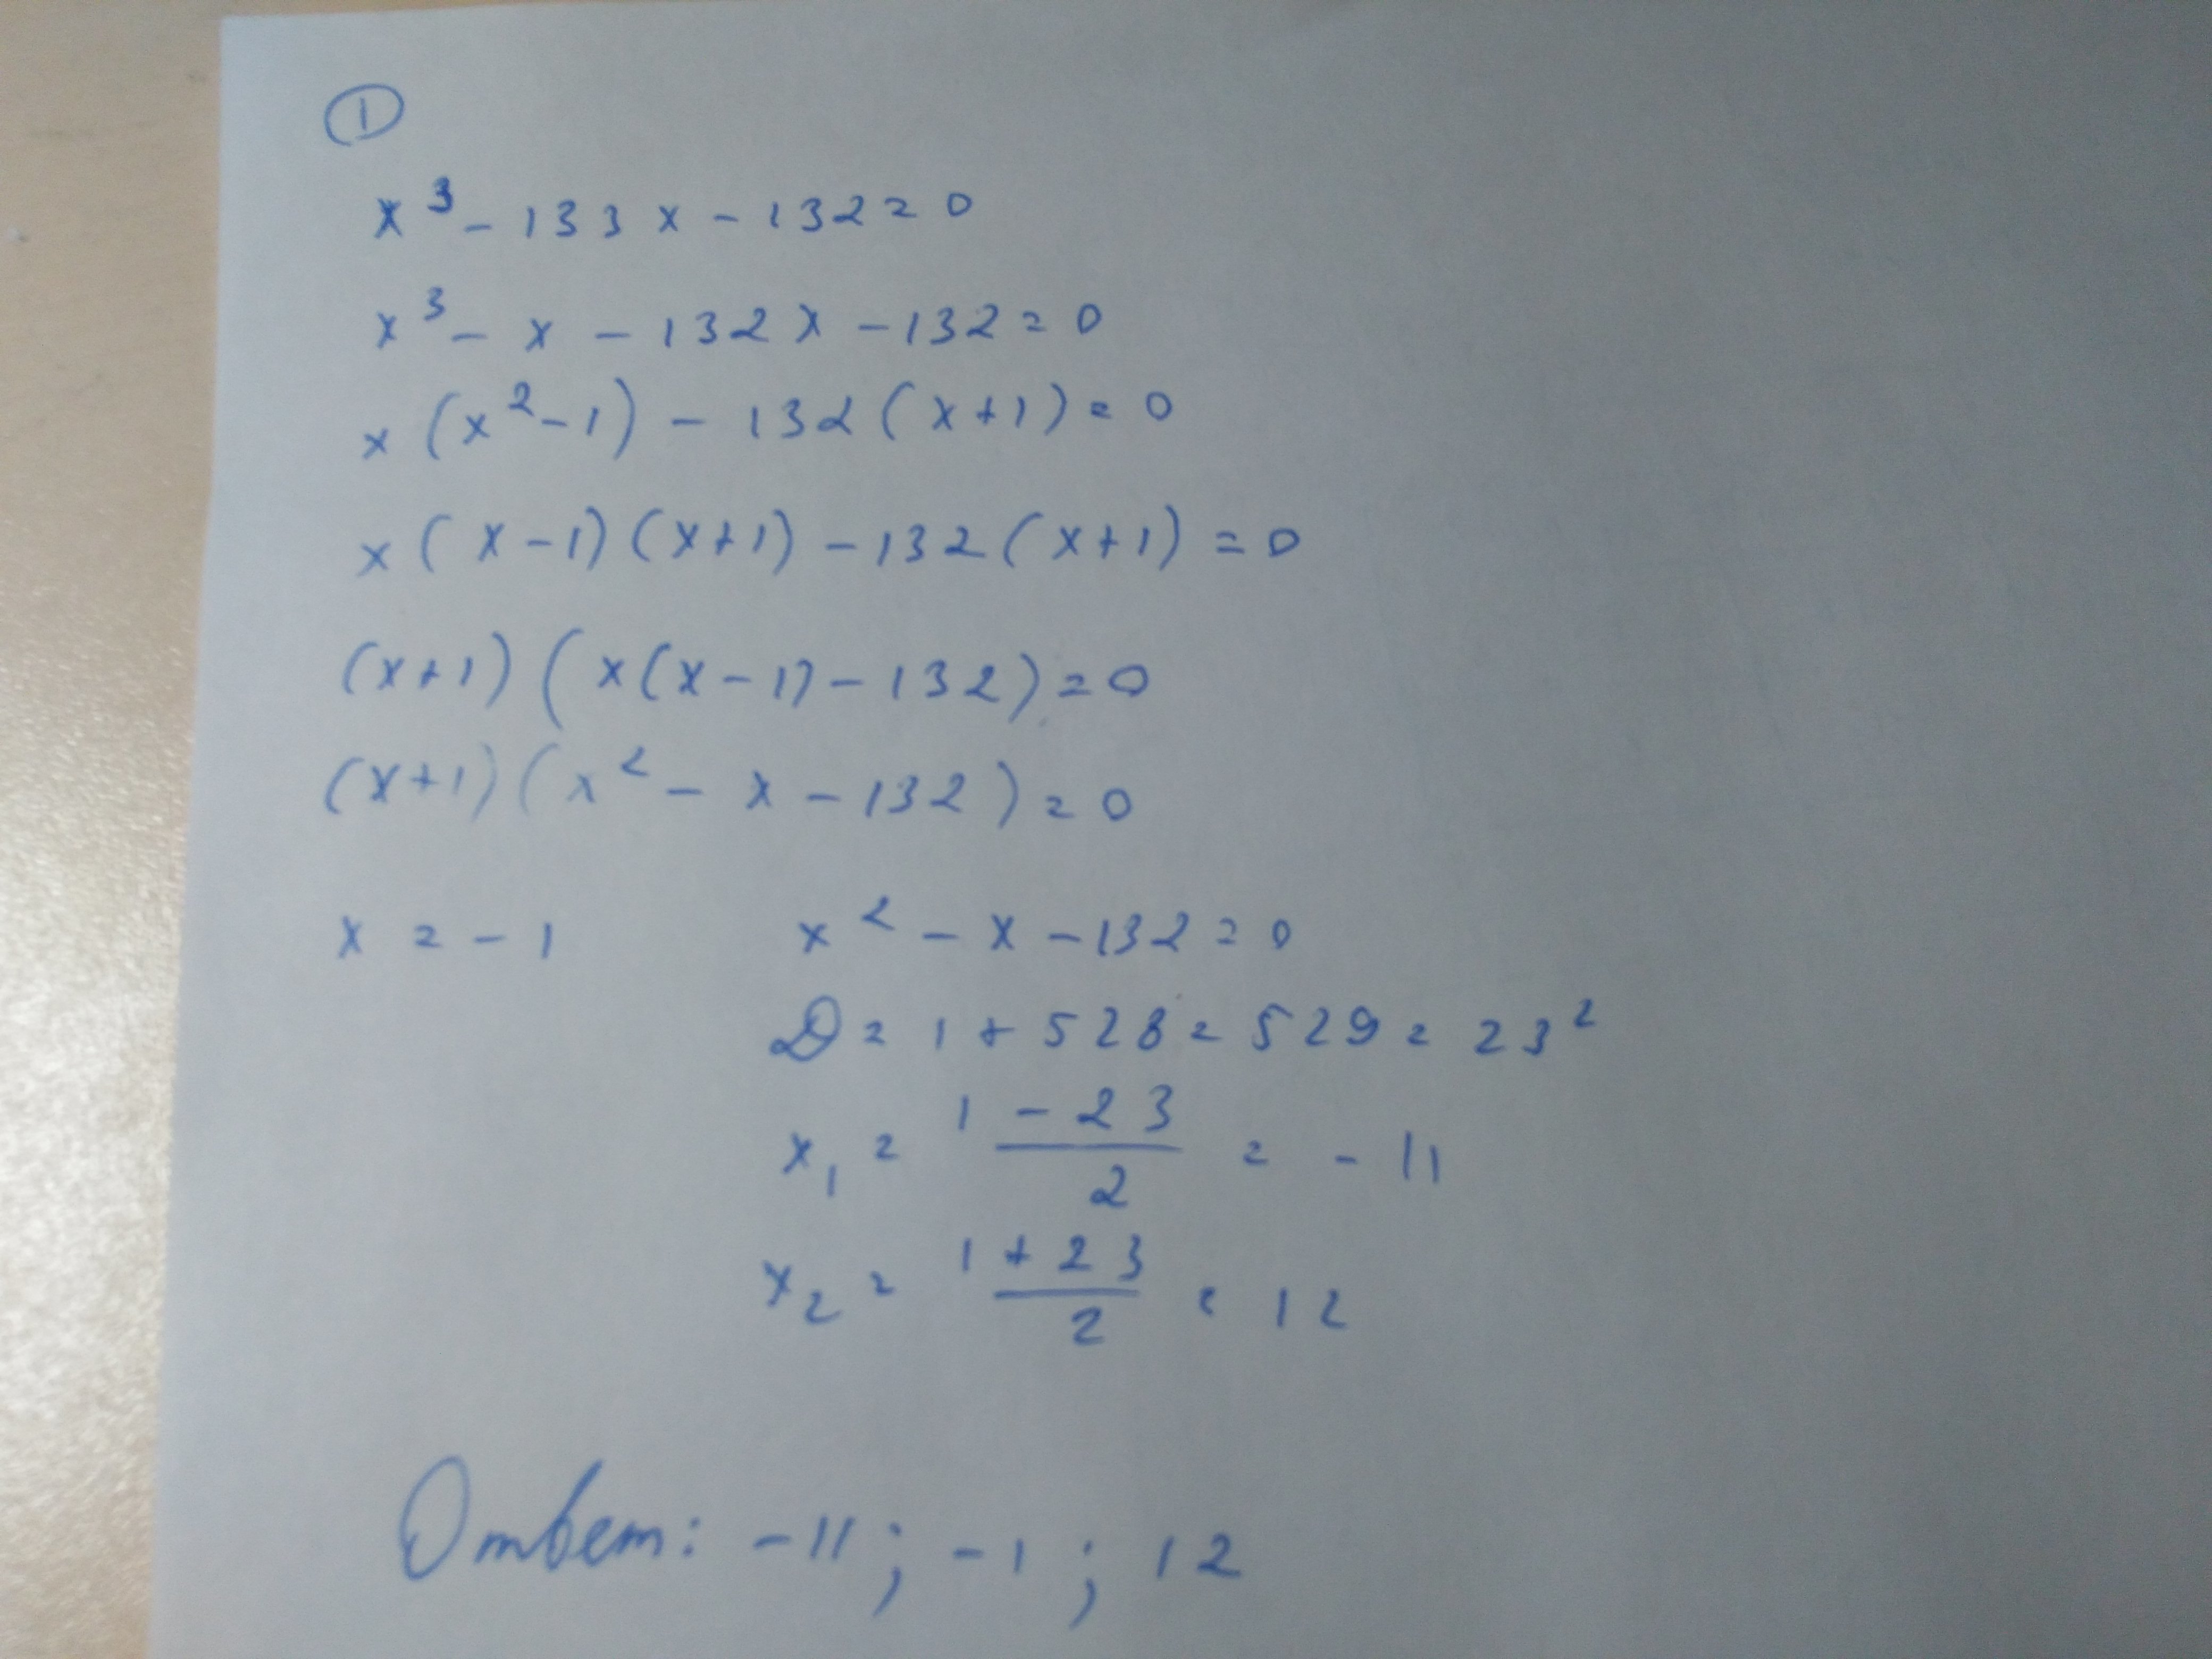 ①
x³ - 133x - 132 = 0
x³ - x - 132x - 132 = 0
x(x² - 1) - 132(x + 1) = 0
x(x - 1)(x + 1) - 132(x + 1) = 0
(x + 1)(x(x - 1) - 132) = 0
(x + 1)(x² - x - 132) = 0
x = -1 x² - x - 132 = 0
D = 1 + 528 = 529 = 23²
x₁ = (1 - 23)/2 = -11
x₂ = (1 + 23)/2 = 12
Ответ: -11; -1; 12